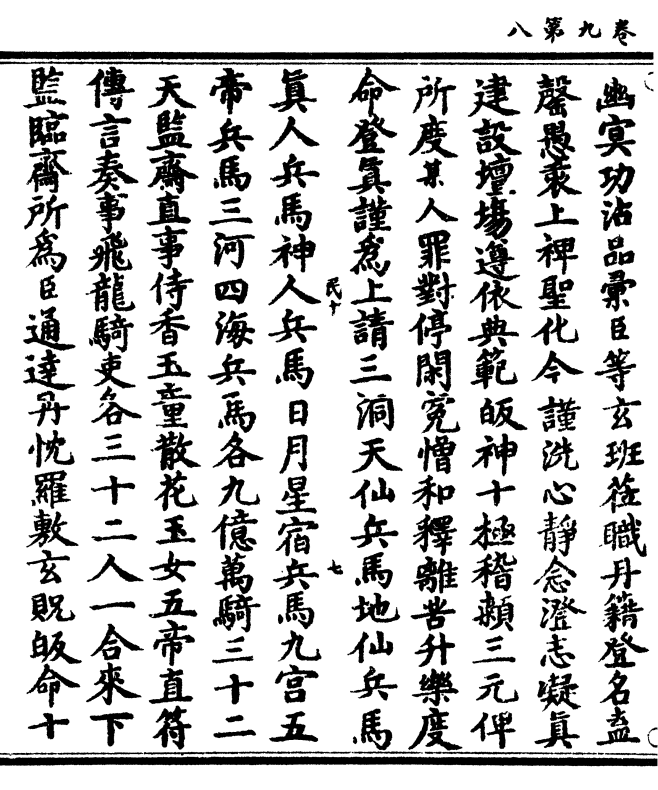 卷九第八
幽冥功沾品彙臣等玄班蒞職丹籍登名盍
罄愚衷上裨聖化今謹洗心靜念澄志凝眞
建設壇場遵依典範皈神十極稽顙三元俾
所度某人罪對停閑寃憎和釋離苦升樂度
命登眞謹爲上請三洞天仙兵馬地仙兵馬
民十
七
眞人兵馬神人兵馬日月星宿兵馬九宫五
帝兵馬三河四海兵馬各九億萬騎三十二
天監齋直事侍香玉童散花玉女五帝直符
傳言奏事飛龍騎吏各三十二人一合來下
監臨齋所爲臣通達丹忱羅敷玄貺皈命十